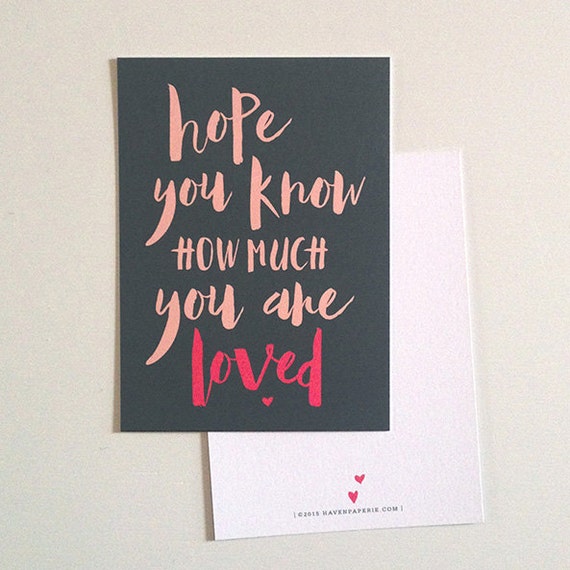 hope
you know
HOW MUCH
you are
loved
| ©2015 HAVENPAPERIE.COM |